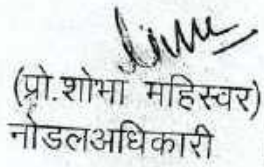 (प्रो.शोभा महिस्वर)
नोडलअधिकारी